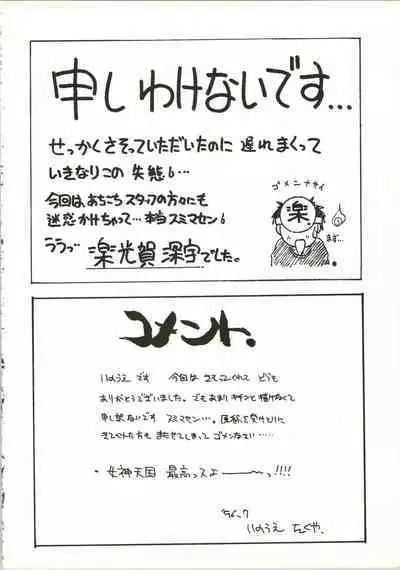 申しわけないです…
せっかくさそっていただいたのに 遅れまくって
いきなりこの 失態!…
今回は、あちこち スタッフの方々にも
迷惑かけちゃって… 本当スミマセン!
ゴメンナサイ
楽
ララっ 楽光賀 深字でした。
コメント.
いのうえ です 今回は さそってくれて どうも
ありがとうございました。でもあまり キチンと描けなくて
申し訳ないです スミマセン…。原稿を受けとりに
きてくれた方も またせてしまって ゴメンなさい……
・女神天国 最高っスよ〜〜っ!!!!
'96.7
いのうえ